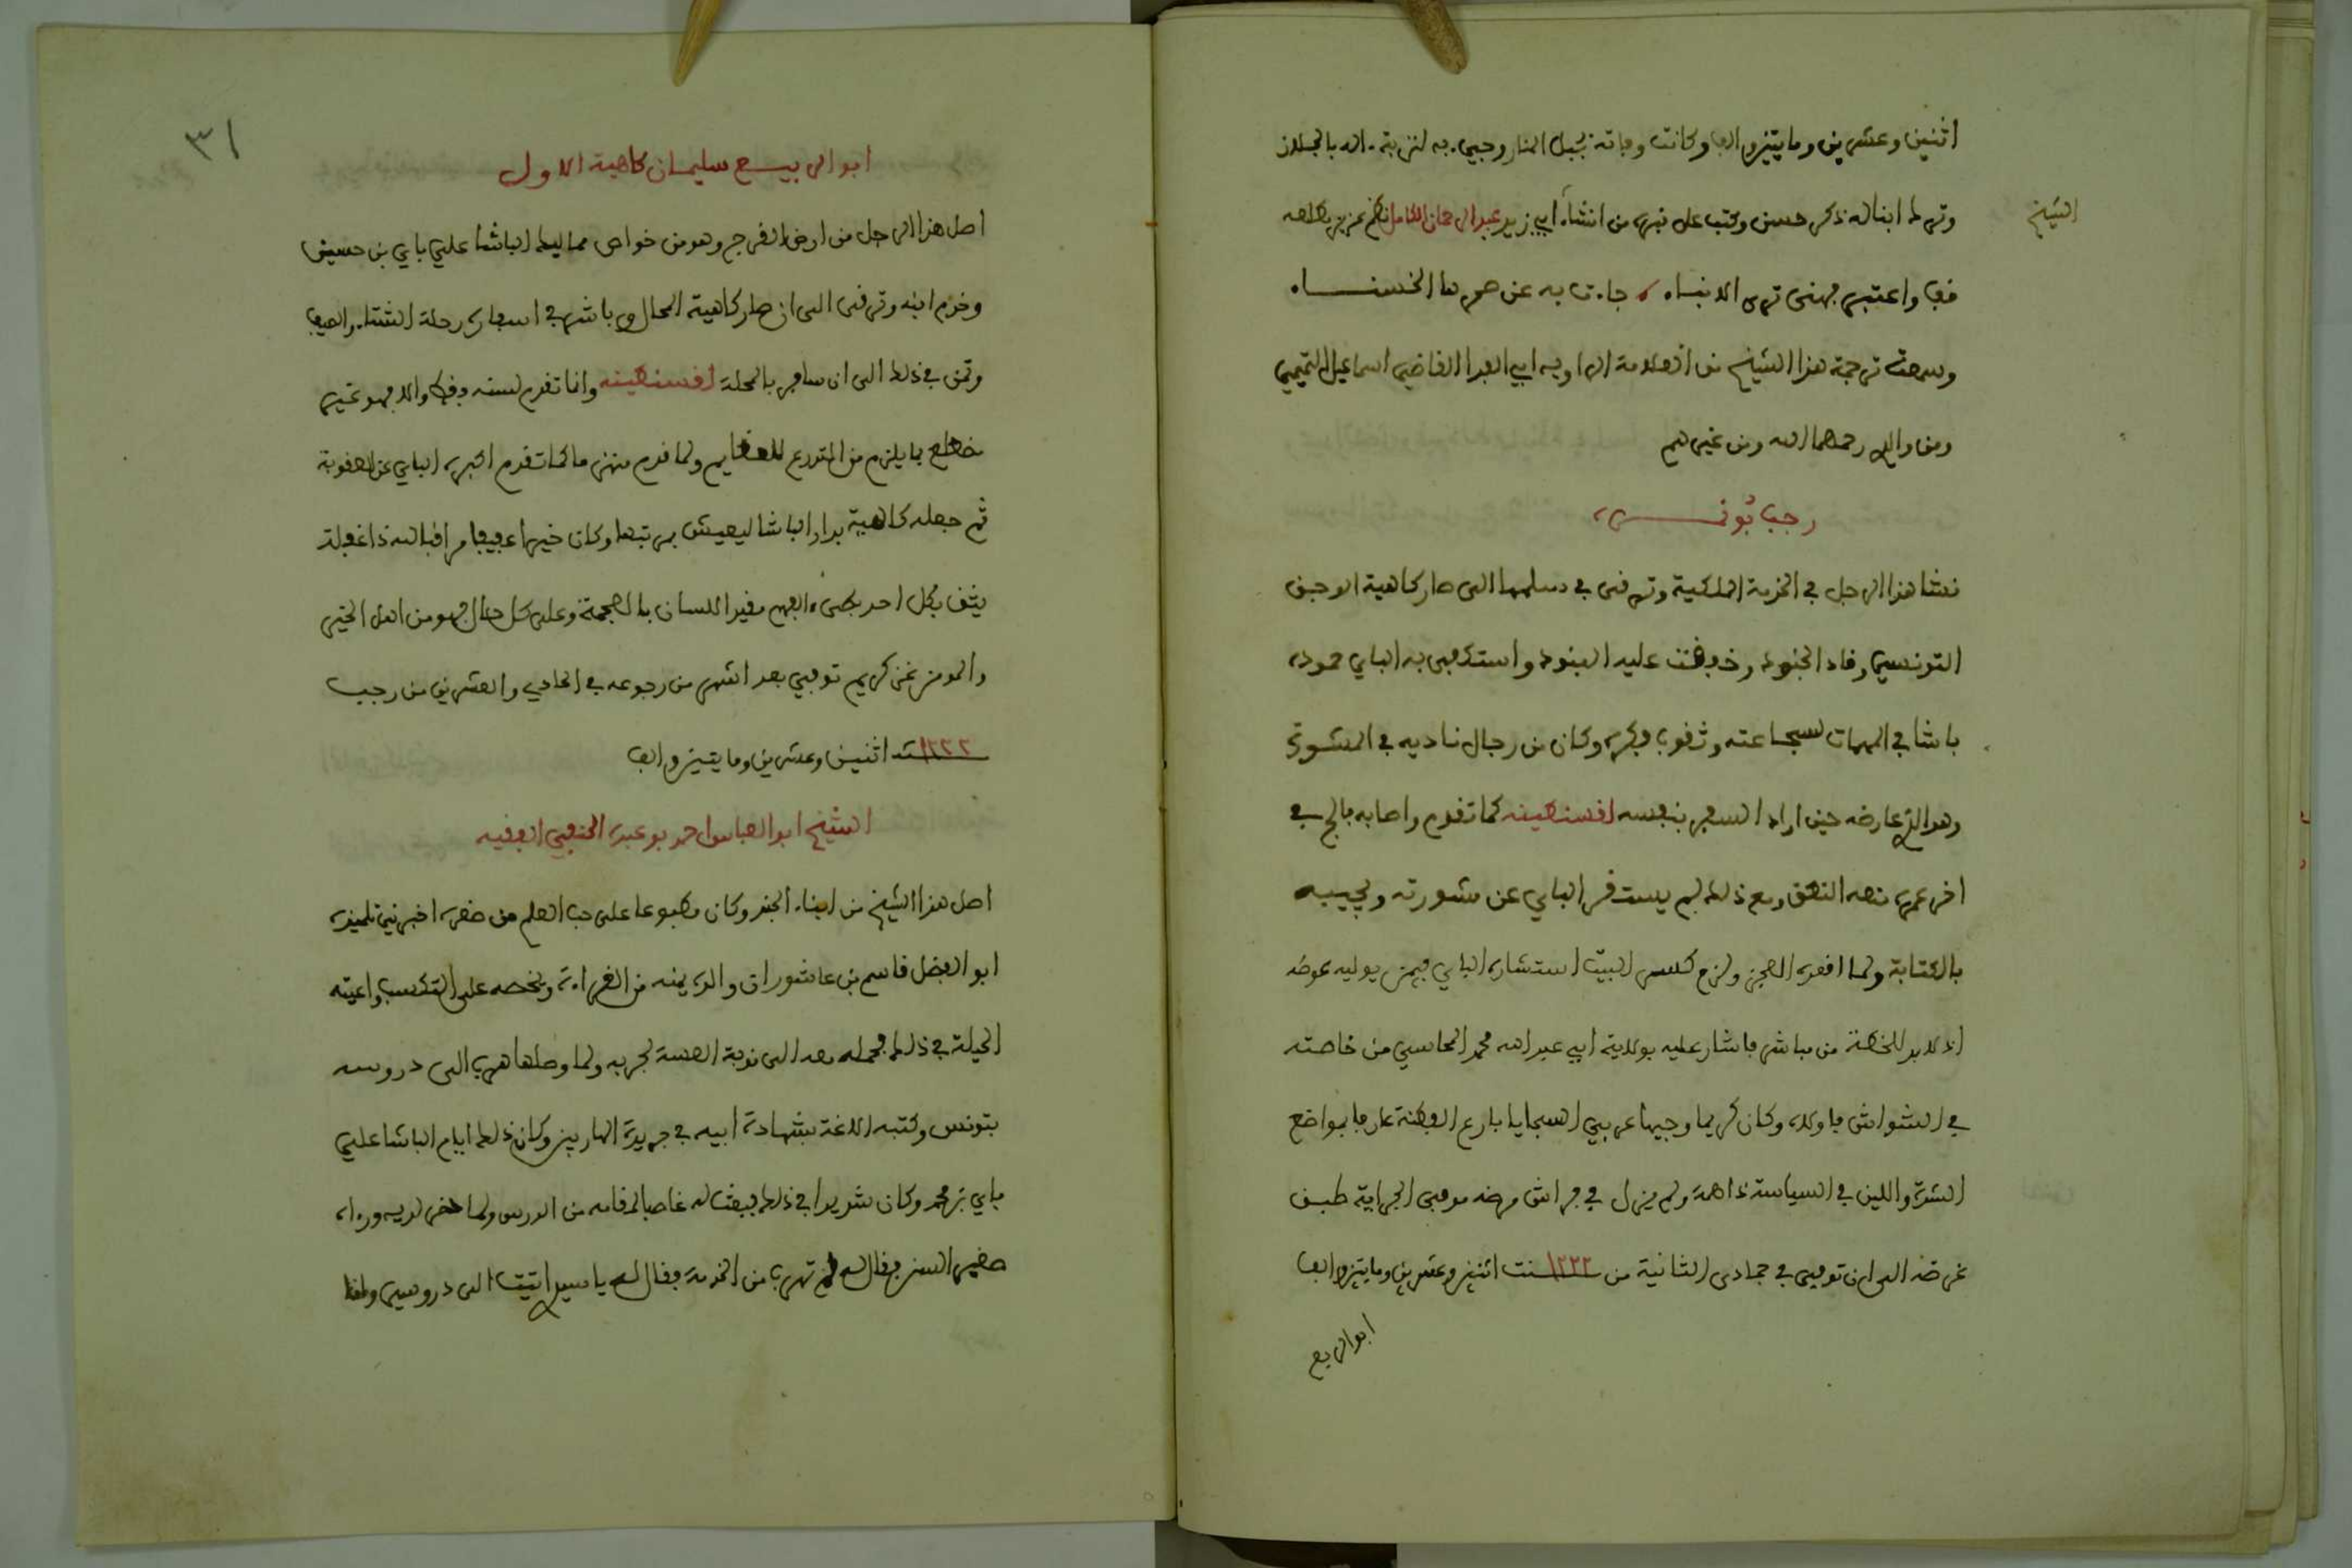 اثنين وعشرين ومايتين والف وكانت وفاته بجبل المنار وجيء به لتربة بالجلاز
الشيخ
وترك ابنا له ذكر حسن وكتب على قبره من انشاء ابي زيد عبد الرحمان الكامل
قف واعتبر فهنى ترى الانباء جاءت به عن صرها الخنساء
وسمعت ترجمة هذا الشيخ من العلامة الراوية ابي الفدا القاضي اسماعيل التميمي
ومن والدي رحمهما الله ومن غيرهم
رجب بونمرة
نشا هذا الرجل في الخدمة الملكية وترقى في سلمها الى صار كاهية الوجق
التونسي وقاد الجنود وخفقت عليه البنود واستكفى به الباي حمودة
باشا في المهمات لشجاعته وثقوب فكره وكان من رجال ناديه في المشورة
وهو الذي عارضه حين اراد السفر بنفسه لقسنطينه كما تقدم واصابه فالج في
اخر عمره منعه النطق ومع ذلك لم يستغن الباي عن مشورته ويجيبه
بالكتابة ولما اقعده العجز ولزم كسر البيت استشاره الباي فيمن يوليه عوضه
اذ لابد للخطة من مباشر فاشار عليه بولاية ابي عبد الله محمد المحاسبي من خاصته
في الشواش فاولاه وكان كريما وجيها عربي السجايا بارع الفطنة عارفا بمواضع
الشدة واللين في السياسة ذا همة ولم يزل في فراش مرضه موفى الجراية طبق
غرضه الى ان توفي في جمادى الثانية من سنة ١٢٢٢ اثنين وعشرين ومايتين والف
ابو الربيع
٣١
ابو الربيع سليمان كاهية الاول
اصل هذا الرجل من ارض الفرج وهو من خواص مماليك الباشا علي باي بن حسين
وخدم ابنه وترقى الى ان صار كاهية المحال وباشر في اسفاره رحلة الشتاء والصيف
وتمرن في ذلك الى ان سافر بالمحلة لقسنطينه وانما تقدم لسنه فقط والا فهو غير
مضطلع بما يلزم من التدرع للعظايم ولما قدم منهزما كما تقدم اكبره الباي عن العقوبة
ثم جعله كاهية بدار الباشا ليعيش بمرتبها وكان خيرا عفيفا مراقبا لله ذا غفلة
يثق بكل احد بطيء الفهم مقيد اللسان بالعجمة وعلى كل حال فهو من اهل الخير
والمومن غر كريم توفي بعد اشهر من رجوعه في الحادي والعشرين من رجب
سنة ١٢٢٢ اثنين وعشرين ومايتين والف
الشيخ ابو العباس احمد بوعبد الحنفي الفقيه
اصل هذا الشيخ من ابناء الجند وكان مطبوعا على حب العلم من صغره اخبرني تلميذه
ابو الفضل قاسم بن عاشور ان والده يمنعه من القراءة ويحضه على التكسب واعيته
الحيلة في ذلك فحمله معه الى نوبة العسة لجربه ولما وصلها هرب الى دروسه
بتونس وكتبه اللاغة بشهادة ابيه في جريدة الهاربين وكان ذلك ايام الباشا علي
باي بن محمد وكان شديدا في ذلك فبعث له غاصبا لاقامه من الدرس ولما حضر لديه وراه
صغير السن فقال له لم تهرب من الخدمة فقال له يا سيدي اتيت الى دروسي ولما